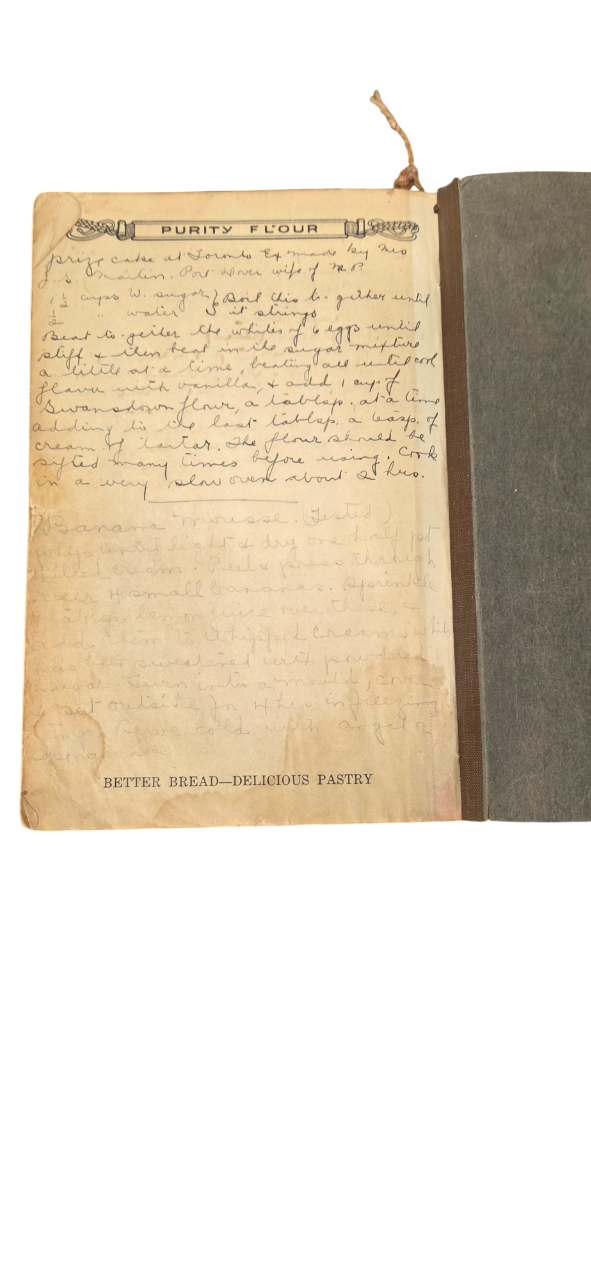 PURITY FLOUR
prize cake at Toronto Ex made by Mrs
J. S. Martin. Port Dover wife of M.P.
1 1/2 cups W. sugar } Boil this to-gether until
1/2 " water } it strings
Beat to-gether the whites of 6 eggs until
stiff & then beat in the sugar mixture
a little at a time, beating all until cool
flavor with vanilla, & add 1 cup of
Swansdown flour, a tablsp. at a time
adding to the last tablsp. a teasp. of
cream of tartar. The flour should be
sifted many times before using. Cook
in a very slow oven about 2 hrs.
Banana Mousse. (Tested)
until light & dry one half pt
cream. Peel & press through
4 small bananas. Sprinkle
tablsp. lemon juice over these, &
add them to whipped cream, which
has been sweetened with powdered
sugar. Turn into a mould, cover
& set outside for 4 hrs in freezing
Serve cold with angel
BETTER BREAD—DELICIOUS PASTRY